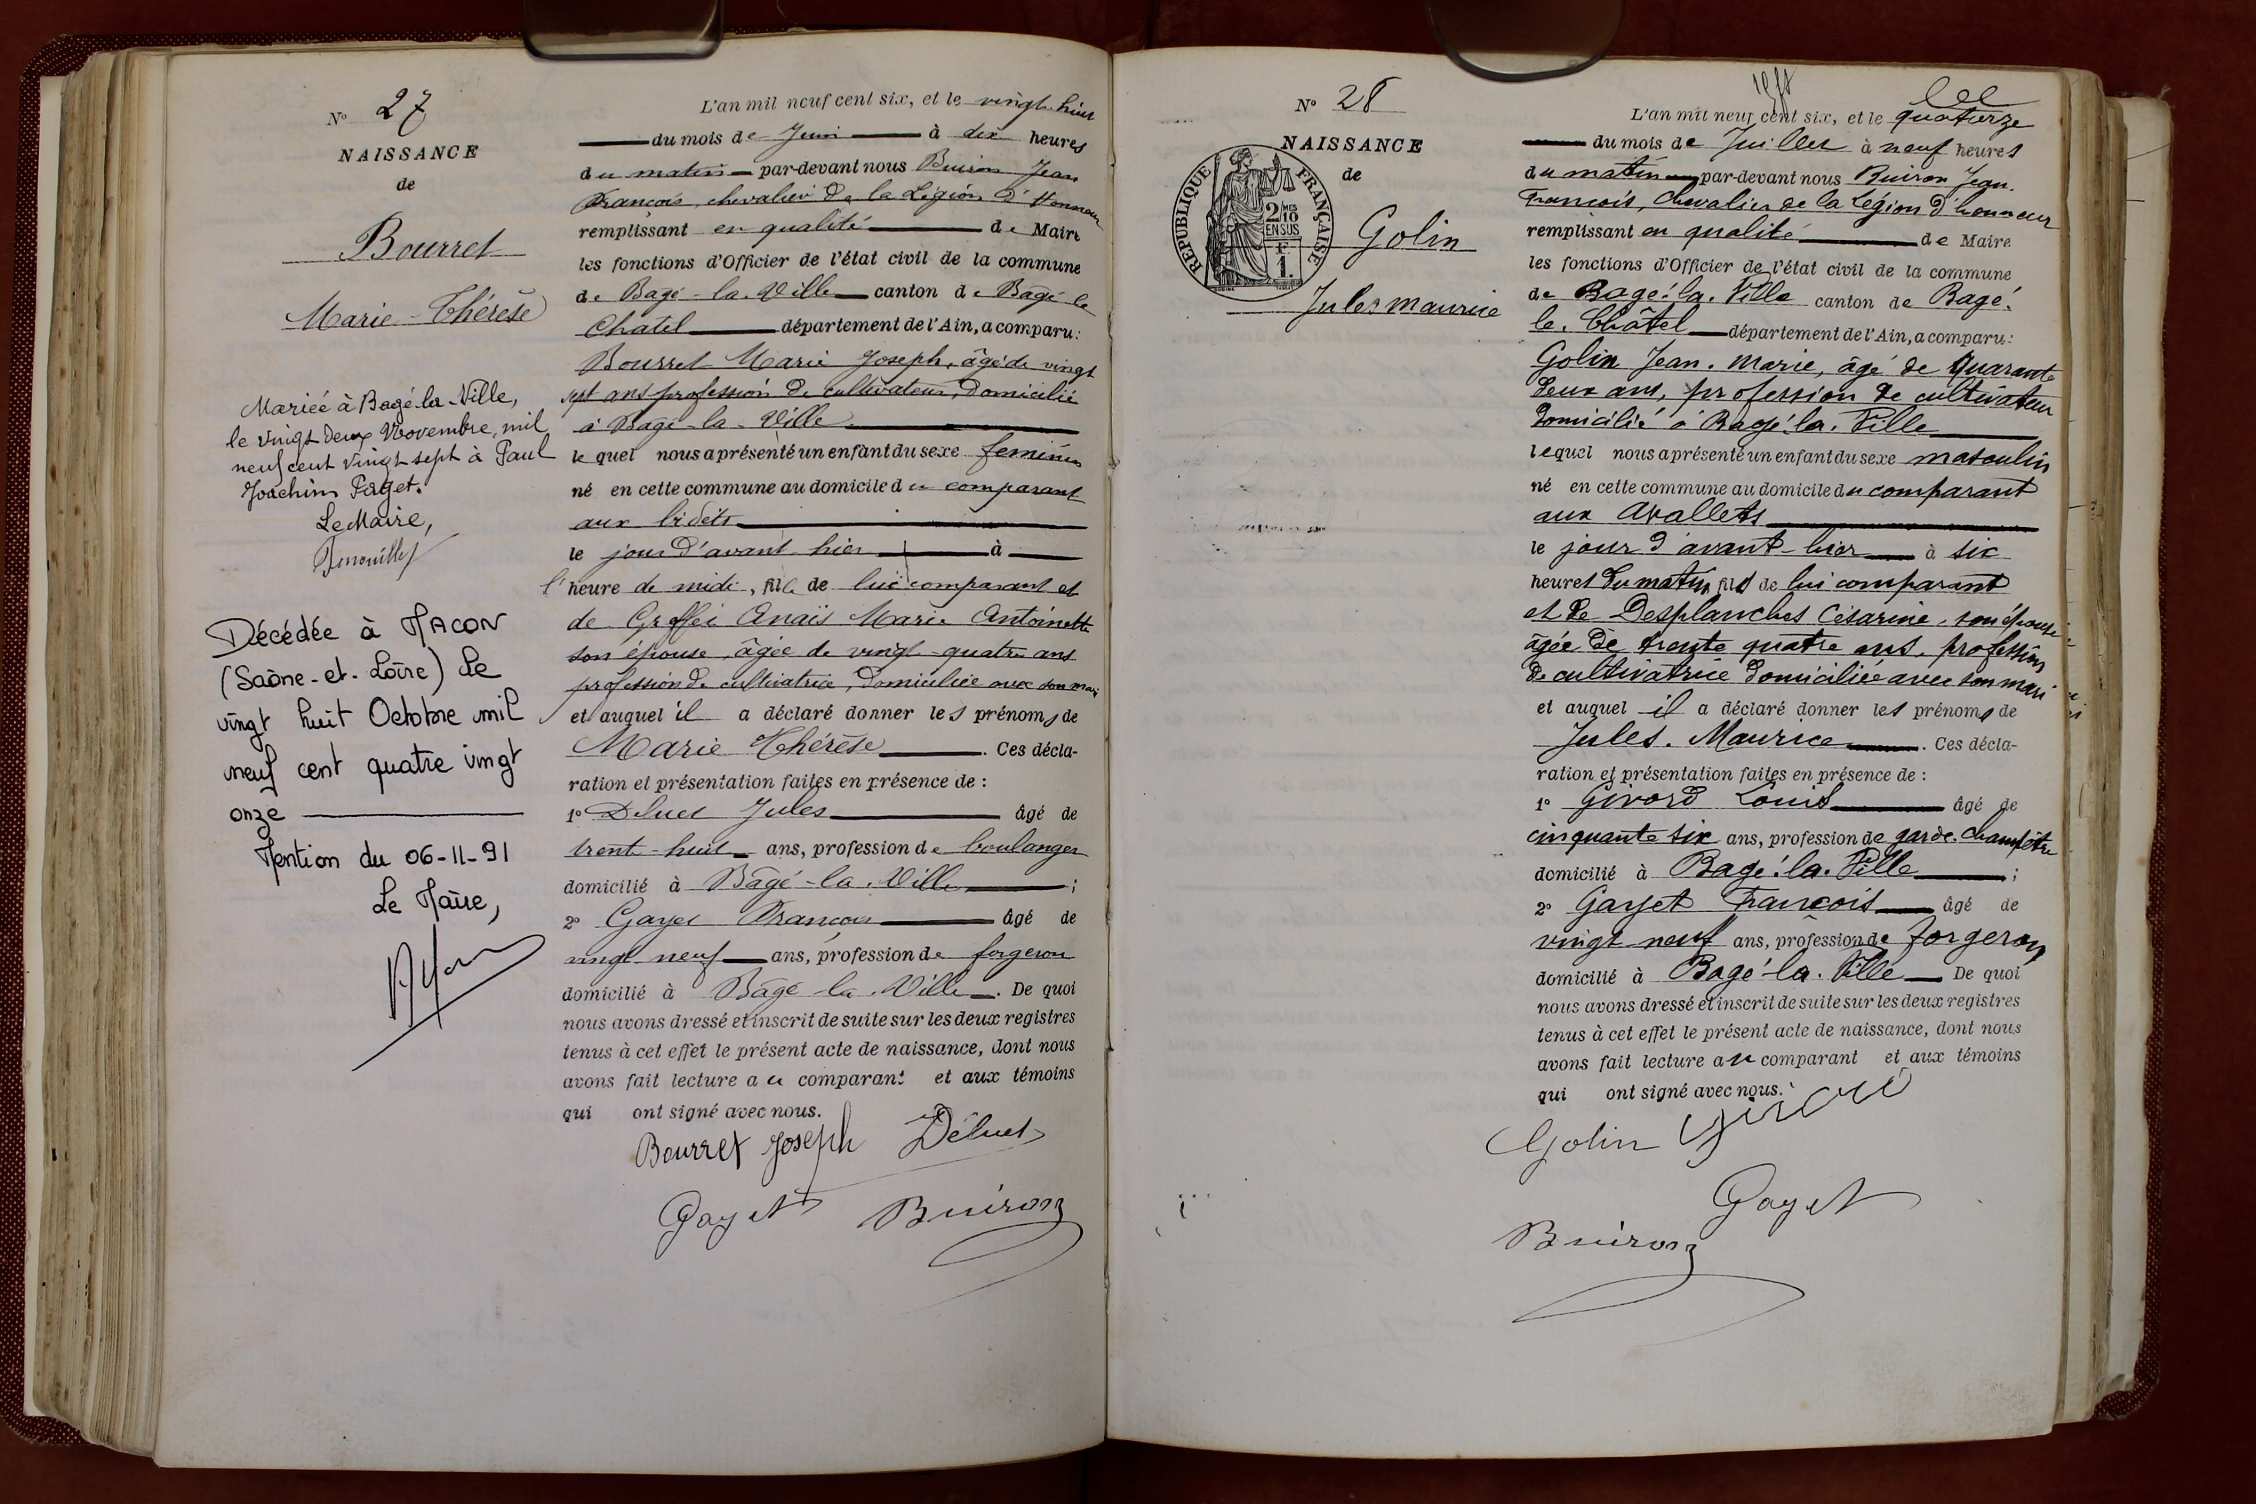 N° 27
NAISSANCE
de
Bourret
Marie-Thérèse
Mariée à Bagé-la-Ville,
le vingt deux Novembre, mil
neuf cent vingt sept à Paul
Joachim Paget.
Le Maire,
Décédée à MACON
(Saône-et-Loire) le
vingt huit Octobre mil
neuf cent quatre vingt
onze
Mention du 06-11-91
Le Maire,
L'an mil neuf cent six, et le vingt-huit
du mois de Juin à dix heures
du matin par-devant nous Buiron Jean
François, chevalier de la Légion d'Honneur
remplissant en qualité de Maire
les fonctions d'Officier de l'état civil de la commune
de Bagé-la-Ville canton de Bagé le
Chatel département de l'Ain, a comparu:
Bourret Marie Joseph, âgé de vingt
sept ans profession de cultivateur, domicilié
à Bagé-la-Ville
lequel nous a présenté un enfant du sexe féminin
né en cette commune au domicile du comparant
aux
le jour d'avant hier à
l'heure de midi, fille de lui comparant et
de Anaïs Marie Antoinette
son épouse, âgée de vingt-quatre ans
profession de cultivatrice, domiciliée avec son mari
et auquel il a déclaré donner les prénoms de
Marie Thérèse. Ces décla-
ration et présentation faites en présence de:
1° Déluet Jules âgé de
trent-huit ans, profession de boulanger
domicilié à Bâgé-la-Ville;
2° Gayet François âgé de
vingt neuf ans, profession de forgeron
domicilié à Bâgé la Ville. De quoi
nous avons dressé et inscrit de suite sur les deux registres
tenus à cet effet le présent acte de naissance, dont nous
avons fait lecture au comparant et aux témoins
qui ont signé avec nous.
Bourret Joseph Déluet
Gayet Buiron
N° 28
NAISSANCE
de
RÉPUBLIQUE FRANÇAISE
2/10 MES
EN SUS
F
1.
Golin
Jules maurice
L'an mil neuf cent six, et le quatorze
du mois de Juillet à neuf heures
du matin par-devant nous Buiron Jean.
François, Chevalier de la Légion d'honneur
remplissant en qualité de Maire
les fonctions d'Officier de l'état civil de la commune
de Bagé-la-Ville canton de Bagé.
le. Châtel département de l'Ain, a comparu:
Golin Jean. Marie, âgé de Quarante
deux ans, profession de cultivateur
domicilié à Bagé-la-Ville
lequel nous a présenté un enfant du sexe masculin
né en cette commune au domicile du comparant
aux Avallets
le jour d'avant-hier à six
heures du matin fils de lui comparant
et de Desplanches Césarine, son épouse
âgée de trente quatre ans, profession
de cultivatrice domiciliée avec son mari
et auquel il a déclaré donner les prénoms de
Jules. Maurice. Ces décla-
ration et présentation faites en présence de:
1° Girard Louis âgé de
cinquante six ans, profession de garde-champêtre
domicilié à Bagé-la-Ville;
2° Gayet François âgé de
vingt neuf ans, profession de forgeron
domicilié à Bagé-la-Ville De quoi
nous avons dressé et inscrit de suite sur les deux registres
tenus à cet effet le présent acte de naissance, dont nous
avons fait lecture au comparant et aux témoins
qui ont signé avec nous.
Golin Girard
Gayet
Buiron